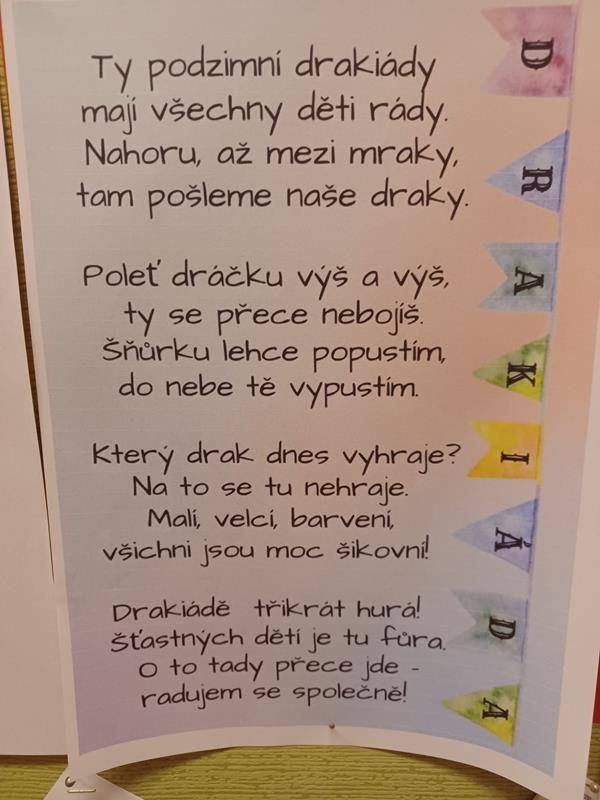 Ty podzimní drakiády
mají všechny děti rády.
Nahoru, až mezi mraky,
tam pošleme naše draky.
Poleť dráčku výš a výš,
ty se přece nebojíš.
Šňůrku lehce popustím,
do nebe tě vypustím.
Který drak dnes vyhraje?
Na to se tu nehraje.
Malí, velcí, barvení,
všichni jsou moc šikovní!
Drakiádě třikrát hurá!
Šťastných dětí je tu fůra.
O to tady přece jde -
radujem se společně!
DRAKIÁDA